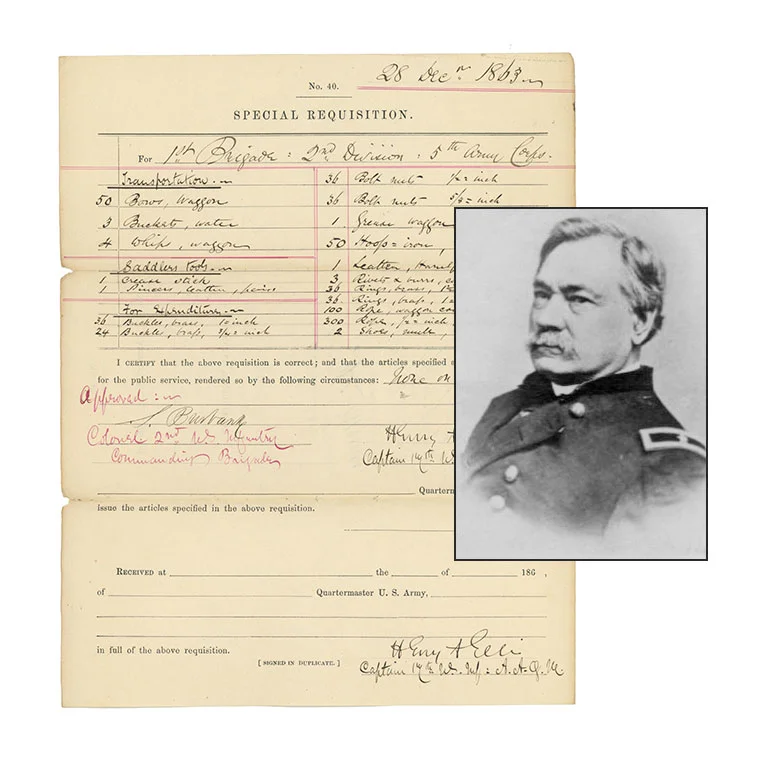 28 Decr 1863
No. 40.
SPECIAL REQUISITION.
For 1st Brigade : 2nd Division : 5th Army Corps.
Transportation.
50 Bows, waggon
3 Buckets, water
4 Whips, waggon
Saddlers tools.
1 Crease stick
1 Pincers, leather, pairs
For Expenditure.
36 Buckles, brass, inch
24 Buckles, brass, 3/4 = inch
36 Bolt nuts 1/2 = inch
36 Bolt nuts 5/8 = inch
1 Grease waggon
50 Hoop = iron,
1 Leather,
3 Rivets & burrs,
36 Rings, brass,
36 Rings, brass,
100 Rope, waggon
300 Rope, 1/2 = inch
2 Shoes, mule,
I CERTIFY that the above requisition is correct; and that the articles specified a
for the public service, rendered so by the following circumstances: None on
Approved :
S. Burbank
Colonel 2nd U.S. Infantry
Commanding Brigade
Henry A
Captain 17th U.
Quarterm
issue the articles specified in the above requisition.
RECEIVED at the of 186 ,
of Quartermaster U. S. Army,
in full of the above requisition.
[ SIGNED IN DUPLICATE. ]
Henry A Ellis
Captain 17th U.S. Inf : A.A.Q.M.